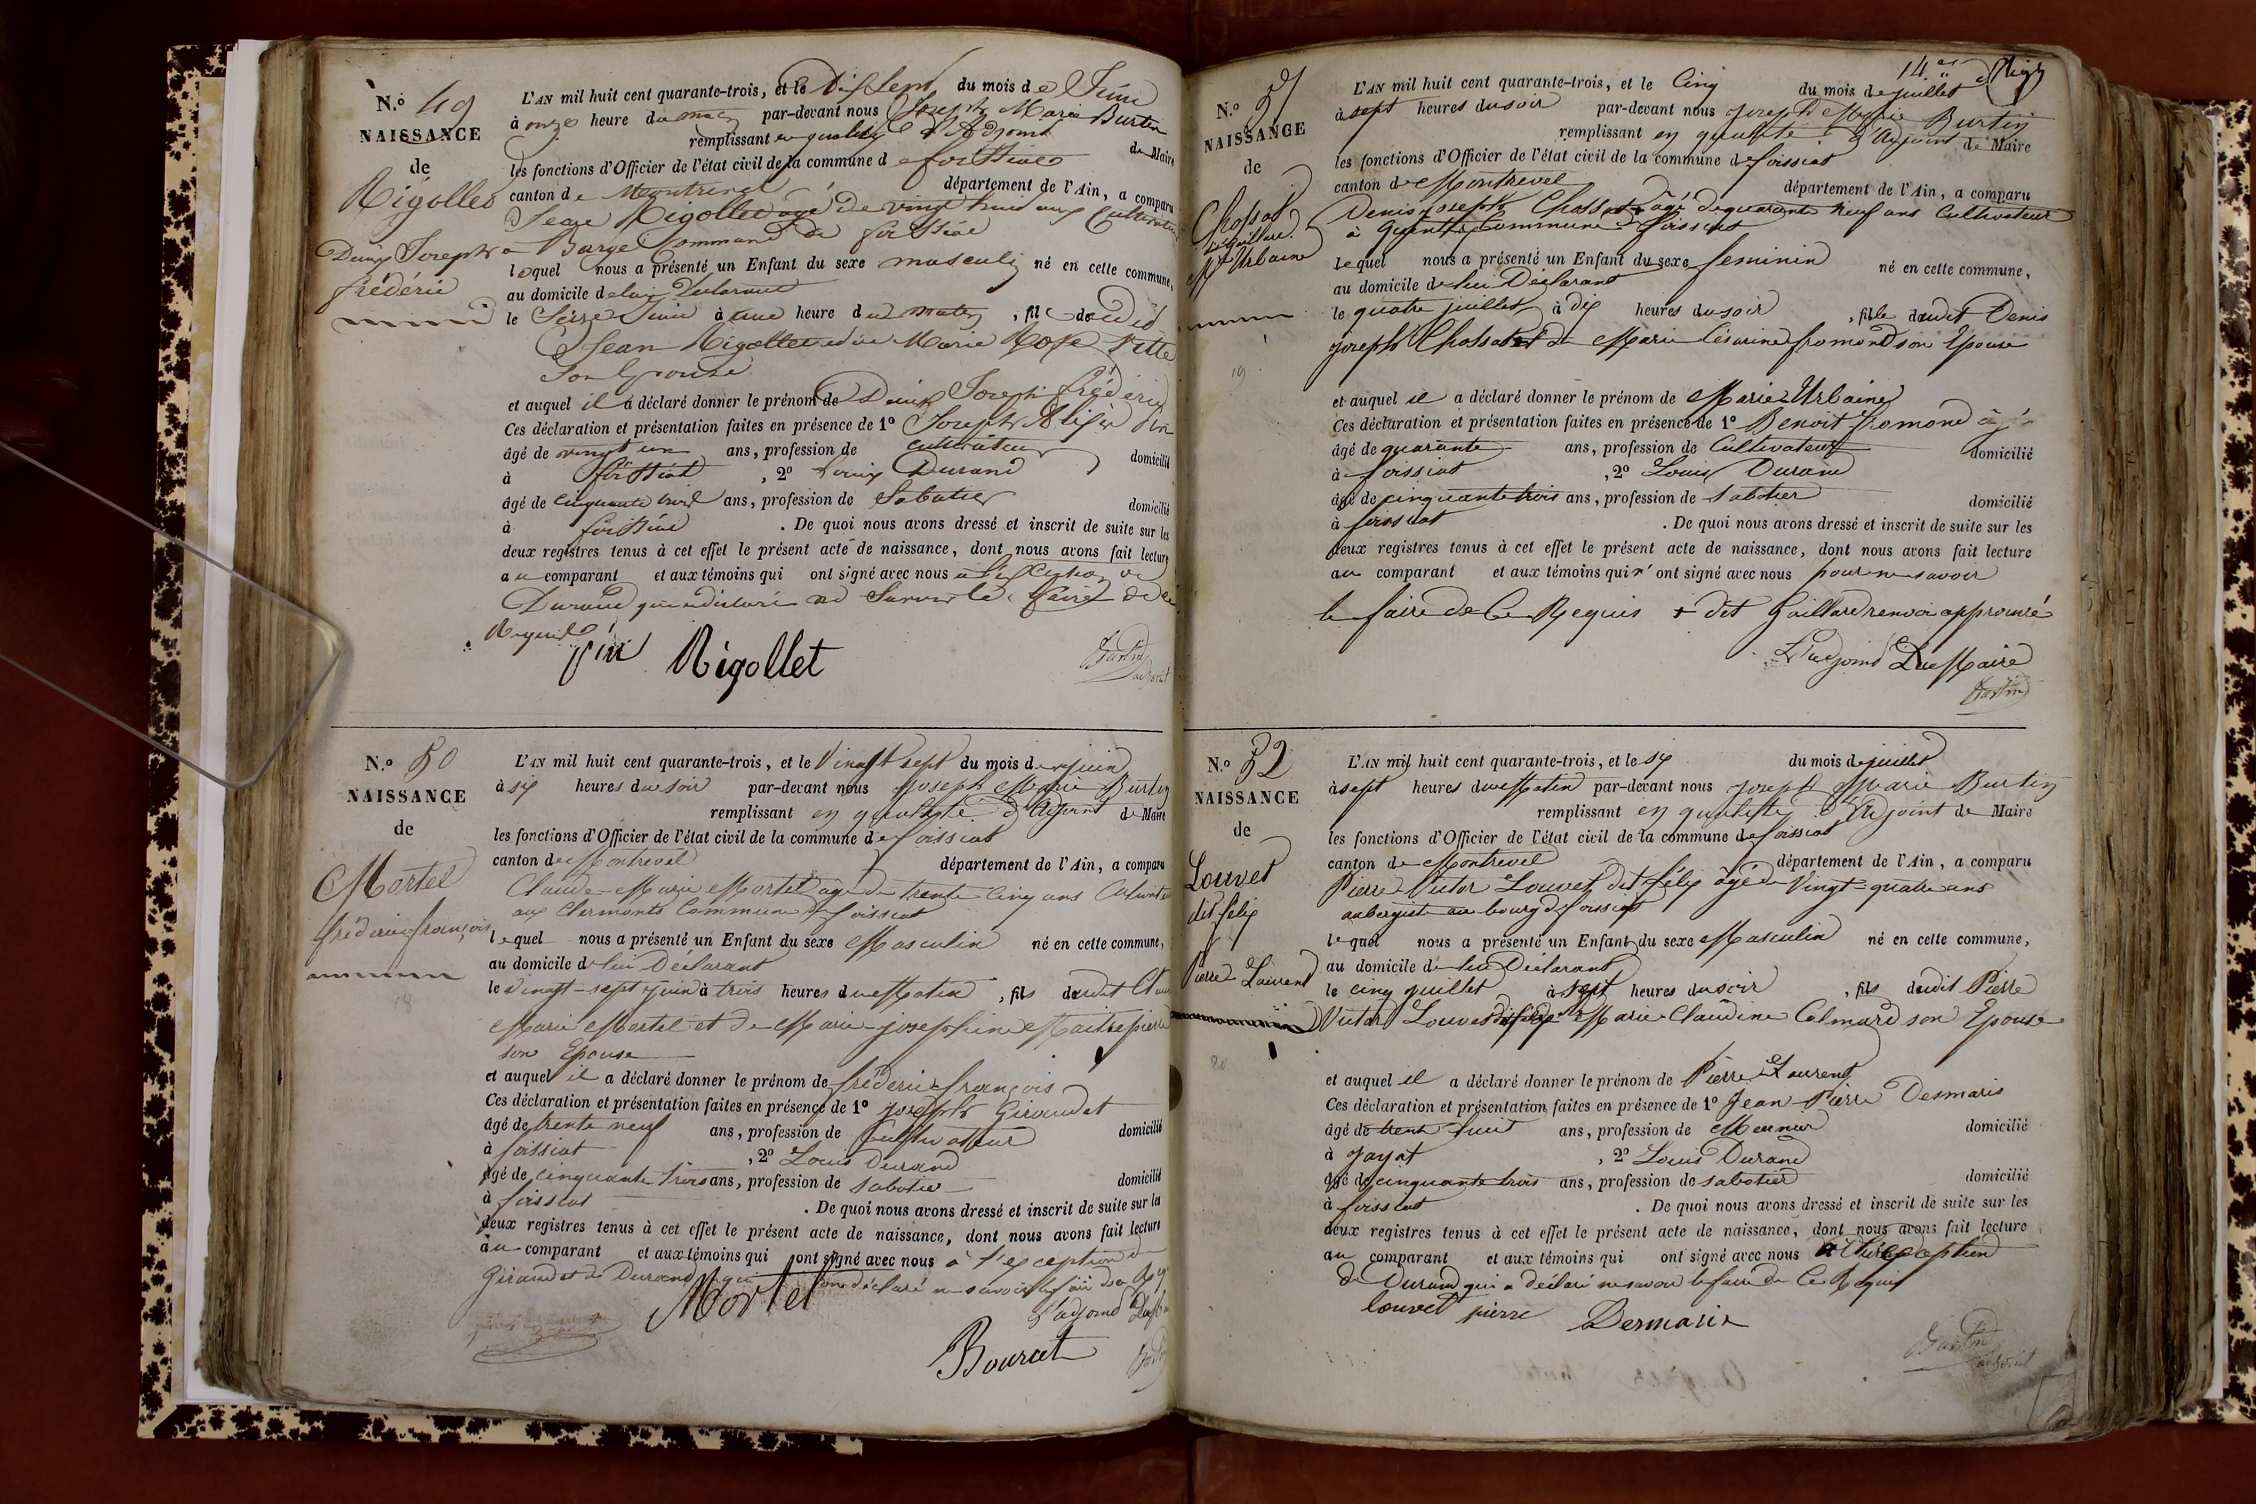 N.º 49
NAISSANCE
de
Rigollet
Denis Joseph
frédéric
L'AN mil huit cent quarante-trois, et le Dix Sept du mois de Juin
à onze heure du matin par-devant nous Joseph Marie Burtin
remplissant en qualité d'Adjoint de Maire
les fonctions d'Officier de l'état civil de la commune de foissiat
canton de Montrevel département de l'Ain, a comparu
Jean Rigollet agé de vingt huit ans Cultivateur
a Barge Commune de foissiat
lequel nous a présenté un Enfant du sexe masculin né en cette commune,
au domicile de lui Déclarant
le Seize Juin à une heure du matin, fils dudit
Jean Rigollet et de Marie Rose Pitte
Son Epouse
et auquel il a déclaré donner le prénom de Denis Joseph frédéric
Ces déclaration et présentation faites en présence de 1º Joseph
âgé de vingt un ans, profession de cultivateur domicilié
à foissiat, 2º Louis Durand
âgé de cinquante trois ans, profession de Sabotier domicilié
à foissiat. De quoi nous avons dressé et inscrit de suite sur les
deux registres tenus à cet effet le présent acte de naissance, dont nous avons fait lecture
au comparant et aux témoins qui ont signé avec nous a l'exception de
Durand qui a déclaré ne Savoir le faire de ce
Requis
Rigollet
Burtin
adjoint
N.º 50
NAISSANCE
de
Mortel
fréderic françois
18
L'AN mil huit cent quarante-trois, et le Vingt sept du mois de juin
à six heures du soir par-devant nous joseph Marie Burtin
remplissant en qualité d'Adjoint de Maire
les fonctions d'Officier de l'état civil de la commune de foissiat
canton de Montrevel département de l'Ain, a comparu
Claude-Marie Mortel agé de trente cinq ans Cultivateur
aux Clermonts Commune de foissiat
lequel nous a présenté un Enfant du sexe Masculin né en cette commune,
au domicile de lui Déclarant
le vingt-sept juin à trois heures du Matin, fils dudit Claude
Marie Mortel et de Marie josephine Maitrepierre
son Epouse
et auquel il a déclaré donner le prénom de fréderic françois
Ces déclaration et présentation faites en présence de 1º joseph Giraudet
âgé de trente neuf ans, profession de Cultivateur domicilié
à foissiat, 2º Louis Durand
âgé de cinquante trois ans, profession de sabotier domicilié
à foissiat. De quoi nous avons dressé et inscrit de suite sur les
deux registres tenus à cet effet le présent acte de naissance, dont nous avons fait lecture
au comparant et aux témoins qui ont signé avec nous à l'exception de
Giraudet de Durand qui ont déclaré ne savoir le faire de ce Req
Mortel
L'adjoint
Bourcet
14
N.º 51
NAISSANCE
de
Chossat
dit Gaillard
Mie Urbaine
19
L'AN mil huit cent quarante-trois, et le Cinq du mois de juillet
à sept heures du soir par-devant nous joseph Marie Burtin
remplissant en qualité d'Adjoint de Maire
les fonctions d'Officier de l'état civil de la commune de foissiat
canton de Montrevel département de l'Ain, a comparu
Denis joseph Chossat + agé de quarante neuf ans Cultivateur
à Commune de foissiat
lequel nous a présenté un Enfant du sexe feminin né en cette commune,
au domicile de lui Déclarant
le quatre juillet à dix heures du soir, fille dudit Denis
joseph Chossat et de Marie Césarine fromond son Epouse
et auquel il a déclaré donner le prénom de Marie Urbaine
Ces déclaration et présentation faites en présence de 1º Benoit fromond agé
âgé de quarante ans, profession de Cultivateur domicilié
à foissiat, 2º Louis Durand
âgé de cinquante trois ans, profession de sabotier domicilié
à foissiat. De quoi nous avons dressé et inscrit de suite sur les
deux registres tenus à cet effet le présent acte de naissance, dont nous avons fait lecture
au comparant et aux témoins qui n'ont signé avec nous pour ne savoir
le faire de Ce Requis + dit Gaillard renvoi approuvé
L'adjoint Du Maire
Burtin
N.º 52
NAISSANCE
de
Louvet
dit félix
Pierre Laurent
20
L'AN mil huit cent quarante-trois, et le six du mois de juillet
à sept heures du Matin par-devant nous joseph Marie Burtin
remplissant en qualité d'Adjoint de Maire
les fonctions d'Officier de l'état civil de la commune de foissiat
canton de Montrevel département de l'Ain, a comparu
Pierre Victor Louvet dit félix agé de Vingt-quatre ans
aubergiste au bourg de foissiat
lequel nous a présenté un Enfant du sexe Masculin né en cette commune,
au domicile de lui Déclarant
le cinq juillet à sept heures du soir, fils dudit Pierre
Victor Louvet dit félix et de Marie Claudine Colmard son Epouse
et auquel il a déclaré donner le prénom de Pierre Laurent
Ces déclaration et présentation faites en présence de 1º Jean Pierre Desmaris
âgé de trente huit ans, profession de Meunier domicilié
à jayat, 2º Louis Durand
âgé de cinquante trois ans, profession de sabotier domicilié
à foissiat. De quoi nous avons dressé et inscrit de suite sur les
deux registres tenus à cet effet le présent acte de naissance, dont nous avons fait lecture
au comparant et aux témoins qui ont signé avec nous à l'exception
de Durand qui a déclaré ne savoir le faire de Ce Requis
louvet pierre Desmaris
Burtin
adjoint